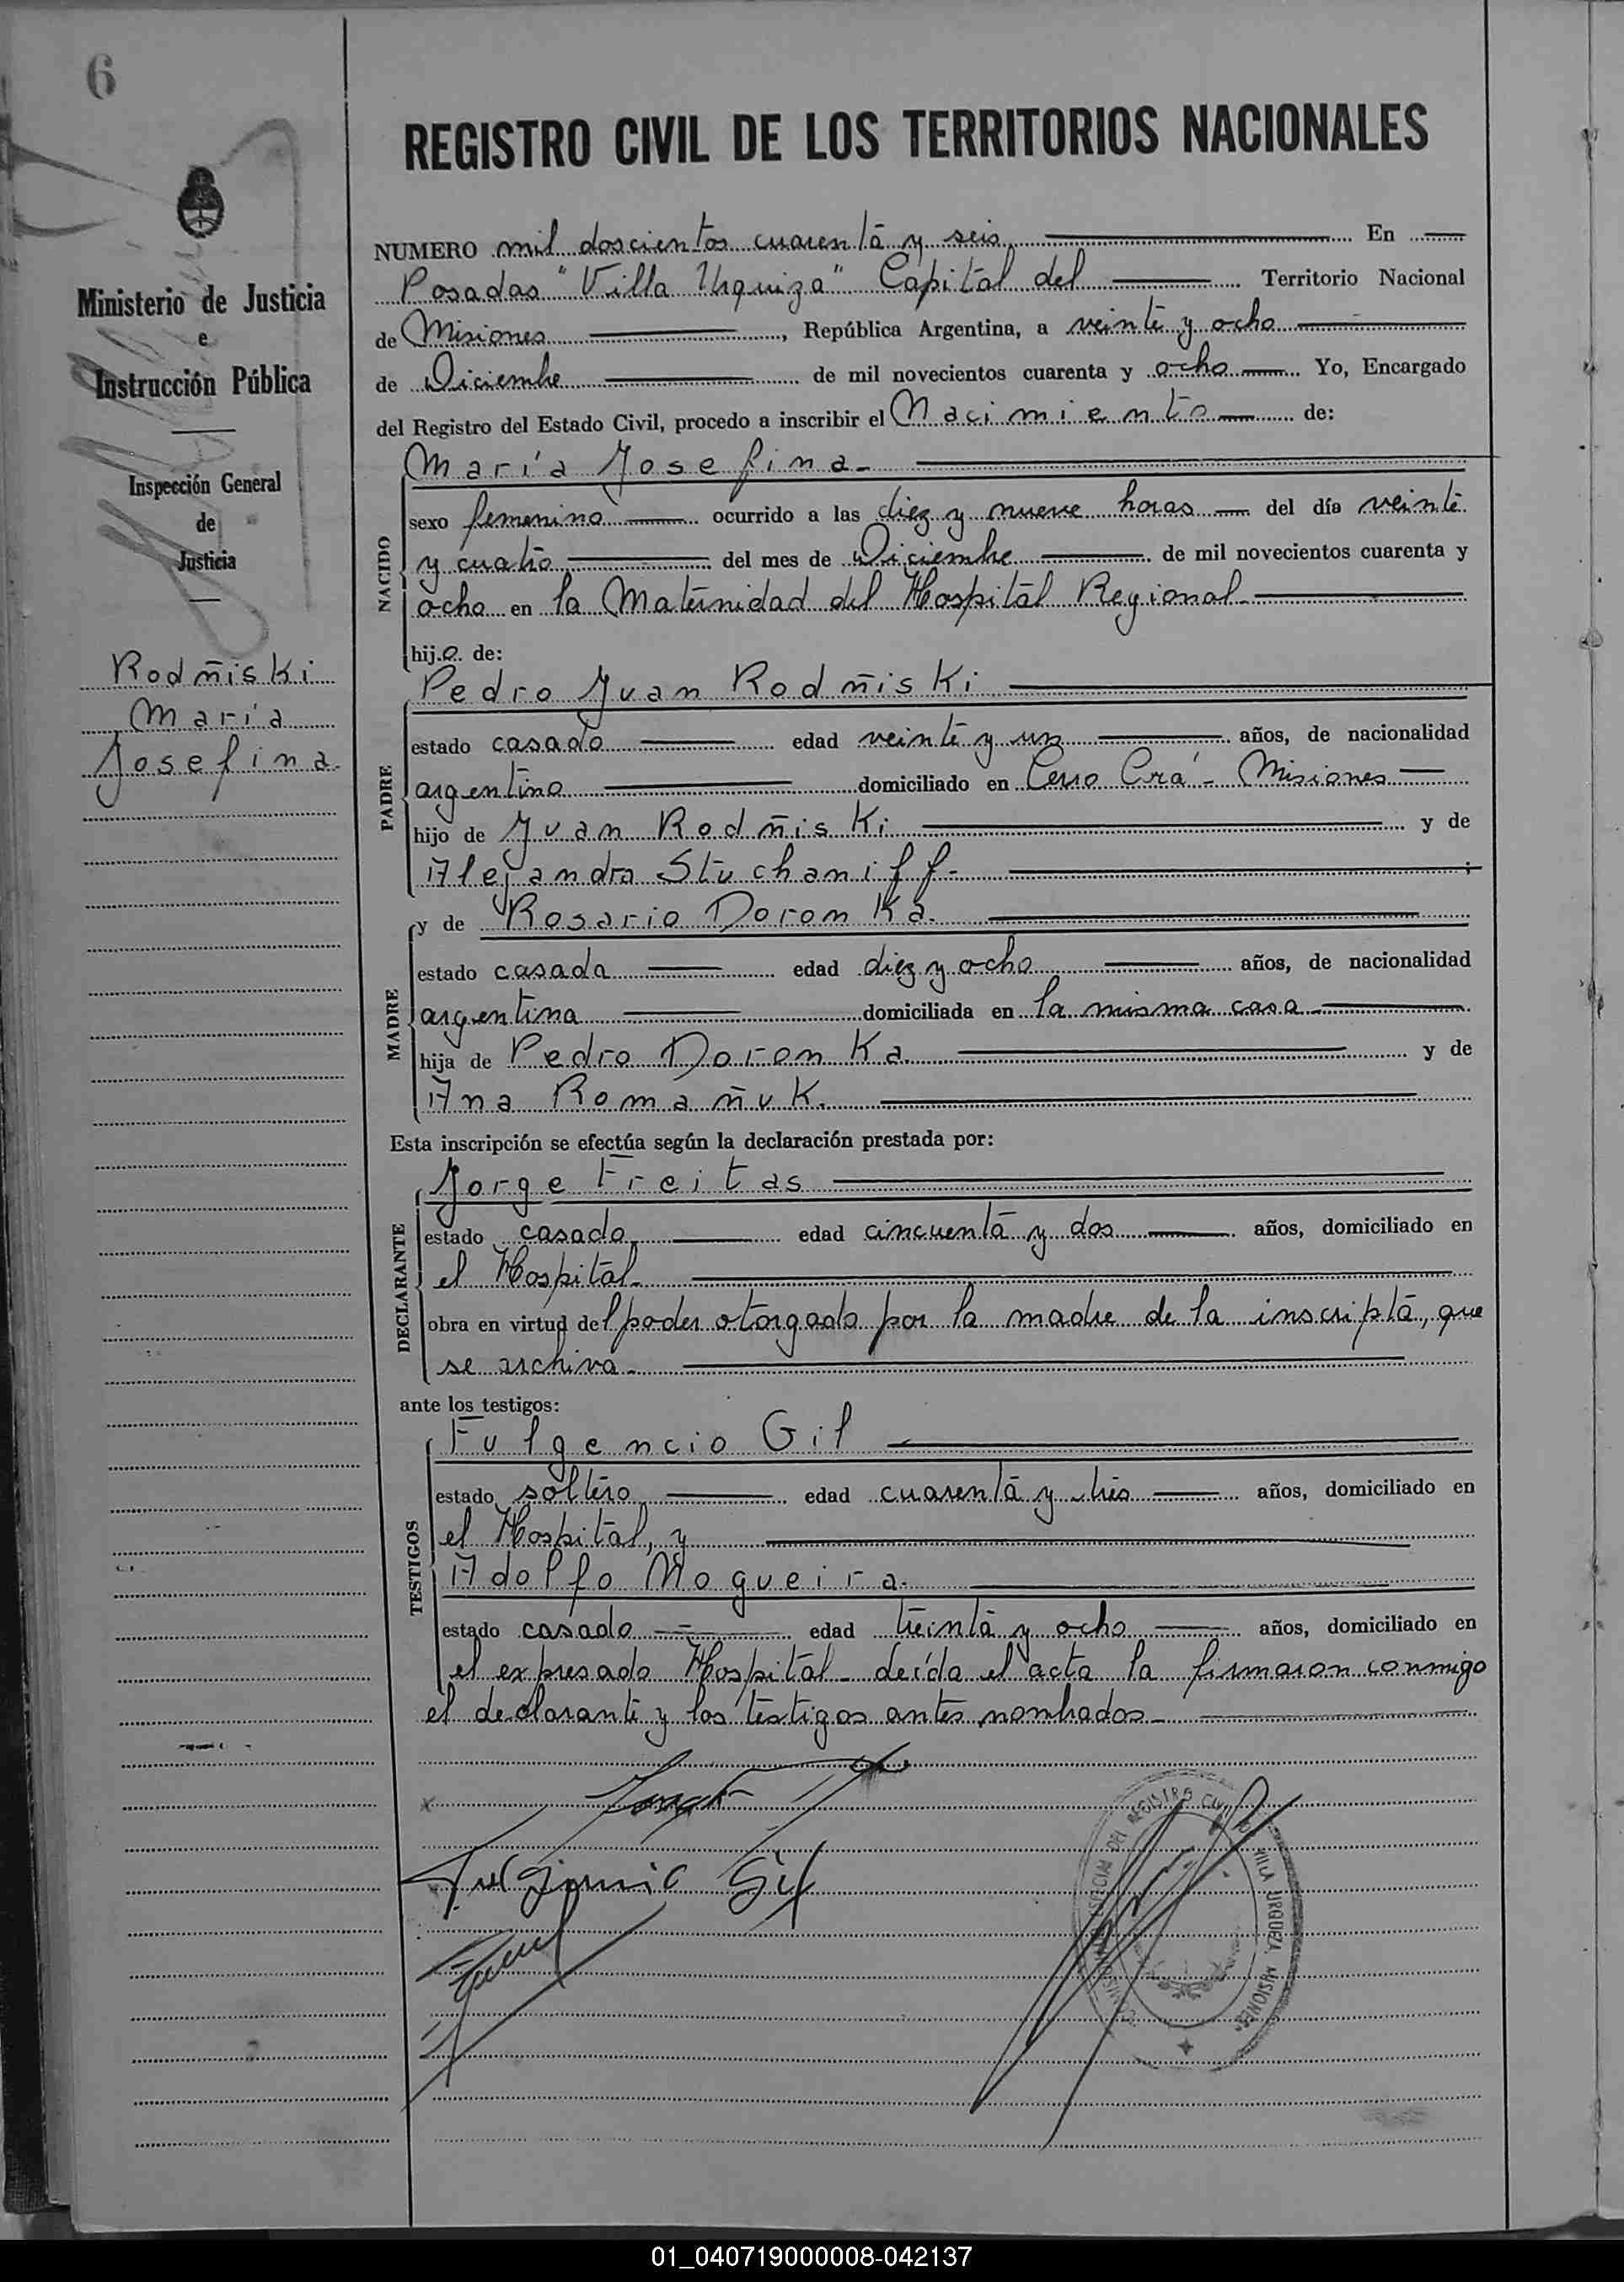 6
REGISTRO CIVIL DE LOS TERRITORIOS NACIONALES
Ministerio de Justicia
e
Instrucción Pública
Inspección General
de
Justicia
Rodñiski
María
Josefina.
NUMERO mil doscientos cuarenta y seis En
Posadas "Villa Urquiza" Capital del Territorio Nacional
de Misiones, República Argentina, a veinte y ocho
de Diciembre de mil novecientos cuarenta y ocho Yo, Encargado
del Registro del Estado Civil, procedo a inscribir el Nacimiento de:
María Josefina.
NACIDO
sexo femenino ocurrido a las diez y nueve horas del día veinte
y cuatro del mes de Diciembre de mil novecientos cuarenta y
ocho en la Maternidad del Hospital Regional
hij.a. de:
Pedro Juan Rodñiski
PADRE
estado casado edad veinte y un años, de nacionalidad
argentino domiciliado en Cerro Corá - Misiones
hijo de Juan Rodñiski y de
Alejandra Stuchaniff.
MADRE
y de Rosario Doronka.
estado casada edad diez y ocho años, de nacionalidad
argentina domiciliada en la misma casa
hija de Pedro Doronka. y de
Ana Romañuk.
Esta inscripción se efectúa según la declaración prestada por:
Jorge Freitas
DECLARANTE
estado casado edad cincuenta y dos años, domiciliado en
el Hospital.
obra en virtud del poder otorgado por la madre de la inscripta, que
se archiva.
ante los testigos:
Fulgencio Gil
TESTIGOS
estado soltero edad cuarenta y tres años, domiciliado en
el Hospital, y
Adolfo Nogueira.
estado casado edad treinta y ocho años, domiciliado en
el expresado Hospital. Leída el acta la firmaron conmigo
el declarante y los testigos antes nombrados.
Fulgencio Gil
DEL REGISTRO CIVIL VILLA URQUIZA MISIONES
01_040719000008-042137